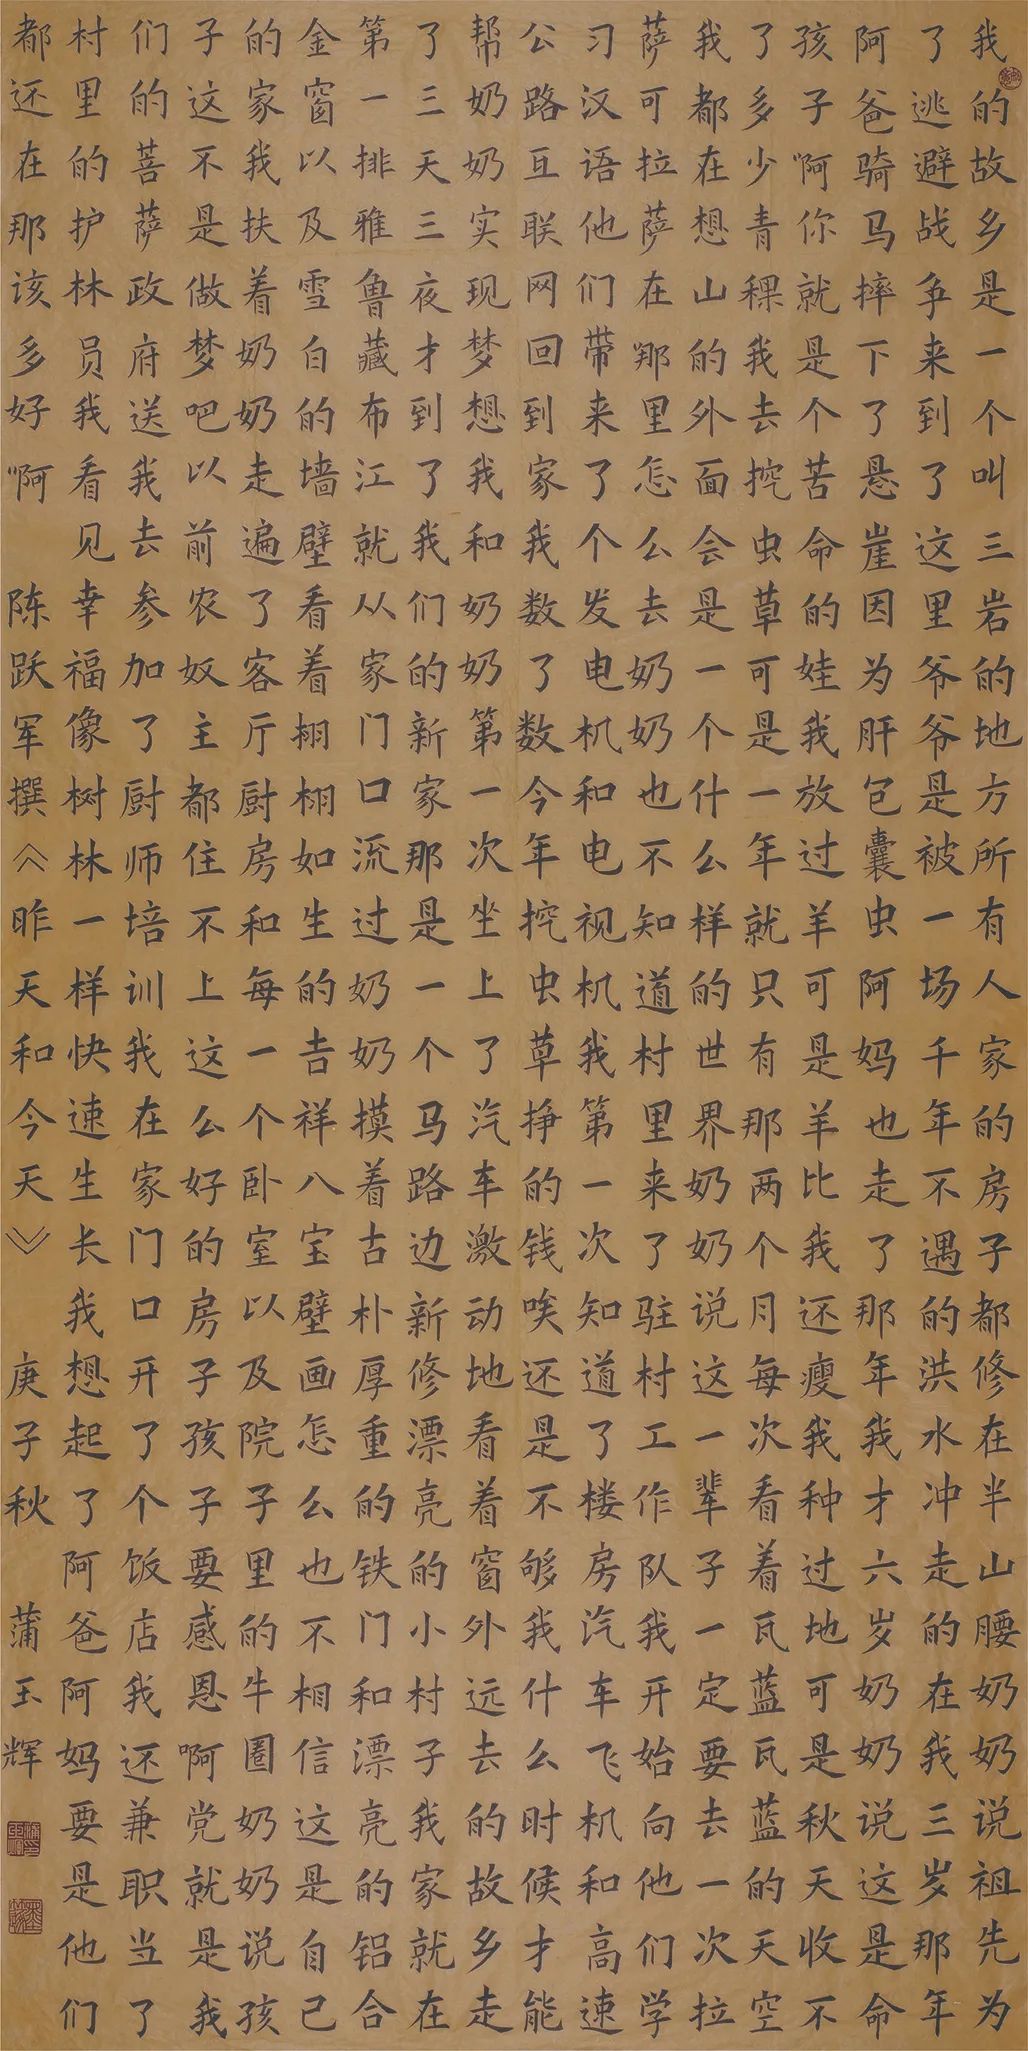 我的故乡是一个叫三岩的地方所有人家的房子都修在半山腰奶奶说祖先为
了逃避战争来到了这里爷爷是被一场千年不遇的洪水冲走的在我三岁那年
阿爸骑马摔下了悬崖因为肝包囊虫阿妈也走了那年我才六岁奶奶说这是命
孩子啊你就是个苦命的娃我放过羊可是羊比我还瘦我种过地可是秋天收不
了多少青稞我去挖虫草可是一年就只有那两个月每次看着瓦蓝瓦蓝的天空
我都在想山的外面会是一个什么样的世界奶奶说这一辈子一定要去一次拉
萨可拉萨在哪里怎么去奶奶也不知道村里来了驻村工作队我开始向他们学
习汉语他们带来了个发电机和电视机我第一次知道了楼房汽车飞机和高速
公路互联网回到家我数了数今年挖虫草挣的钱唉还是不够我什么时候才能
帮奶奶实现梦想我和奶奶第一次坐上了汽车激动地看着窗外远去的故乡走
了三天三夜才到了我们的新家那是一个马路边新修漂亮的小村子我家就在
第一排雅鲁藏布江就从家门口流过奶奶摸着古朴厚重的铁门和漂亮的铝合
金窗以及雪白的墙壁看着栩栩如生的吉祥八宝壁画怎么也不相信这是自己
的家我扶着奶奶走遍了客厅厨房和每一个卧室以及院子里的牛圈奶奶说孩
子这不是做梦吧以前农奴主都住不上这么好的房子孩子要感恩啊党就是我
们的菩萨政府送我去参加了厨师培训我在家门口开了个饭店我还兼职当了
村里的护林员我看见幸福像树林一样快速生长我想起了阿爸阿妈要是他们
都还在那该多好啊 陈跃军撰《昨天和今天》 庚子秋 蒲玉辉